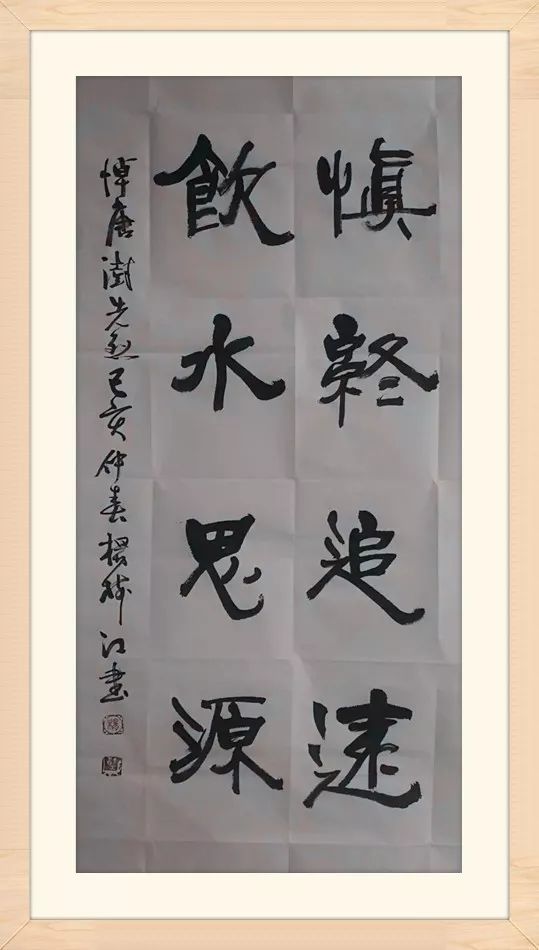 愼終追遠
飲水思源
悼唐澍先烈己亥仲春楊江書